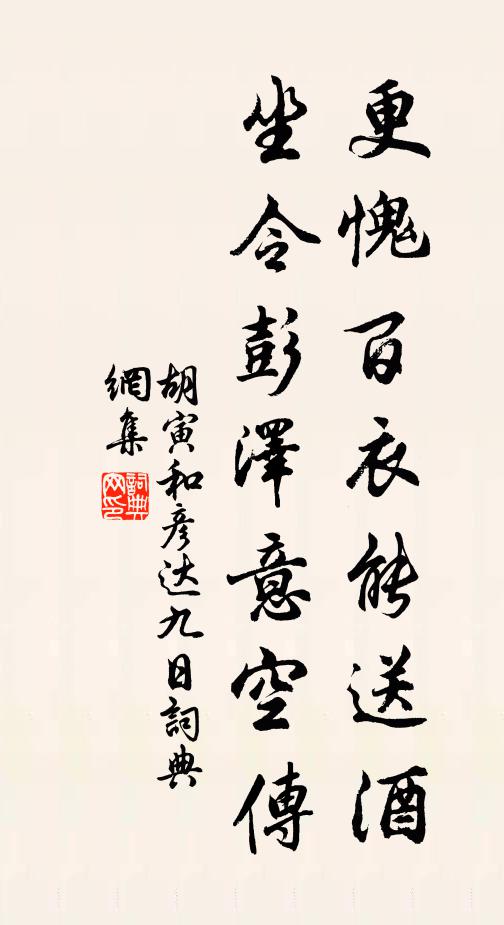 更愧百衣能送酒
坐令彭澤意空傳
胡寅和彥达九日詞典
網集
詞典
网印